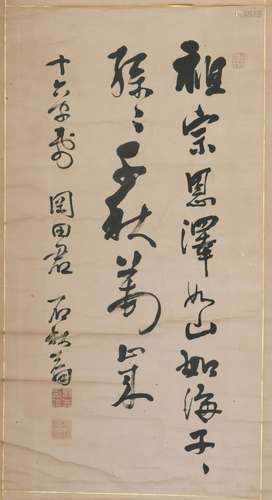 祖宗恩澤如山如海子々
孫々千秋萬歲
十六字爲 岡田君 石秋翁